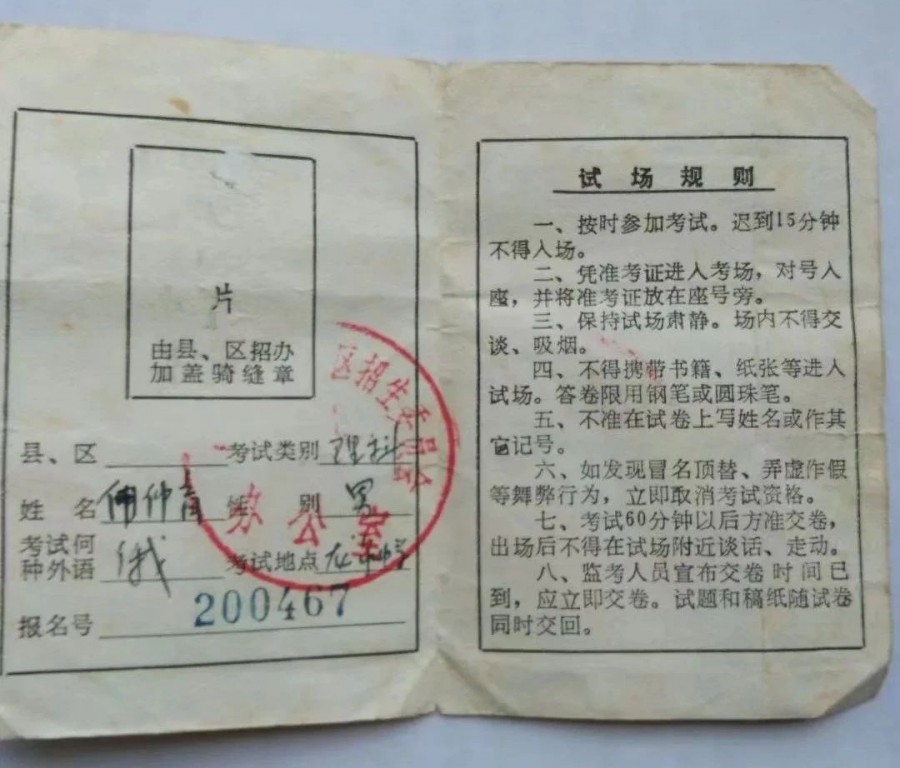 片
由县、区招办
加盖骑缝章
区招生委员会
办公室
县、区 考试类别 理科
姓 名 仲 性 别 男
考试何
种外语 俄 考试地点
报名号 200467
试场规则
一、按时参加考试。迟到15分钟
不得入场。
二、凭准考证进入考场，对号入
座，并将准考证放在座号旁。
三、保持试场肃静。场内不得交
谈、吸烟。
四、不得携带书籍、纸张等进入
试场。答卷限用钢笔或圆珠笔。
五、不准在试卷上写姓名或作其
它记号。
六、如发现冒名顶替、弄虚作假
等舞弊行为，立即取消考试资格。
七、考试60分钟以后方准交卷，
出场后不得在试场附近谈话、走动。
八、监考人员宣布交卷时间已
到，应立即交卷。试题和稿纸随试卷
同时交回。